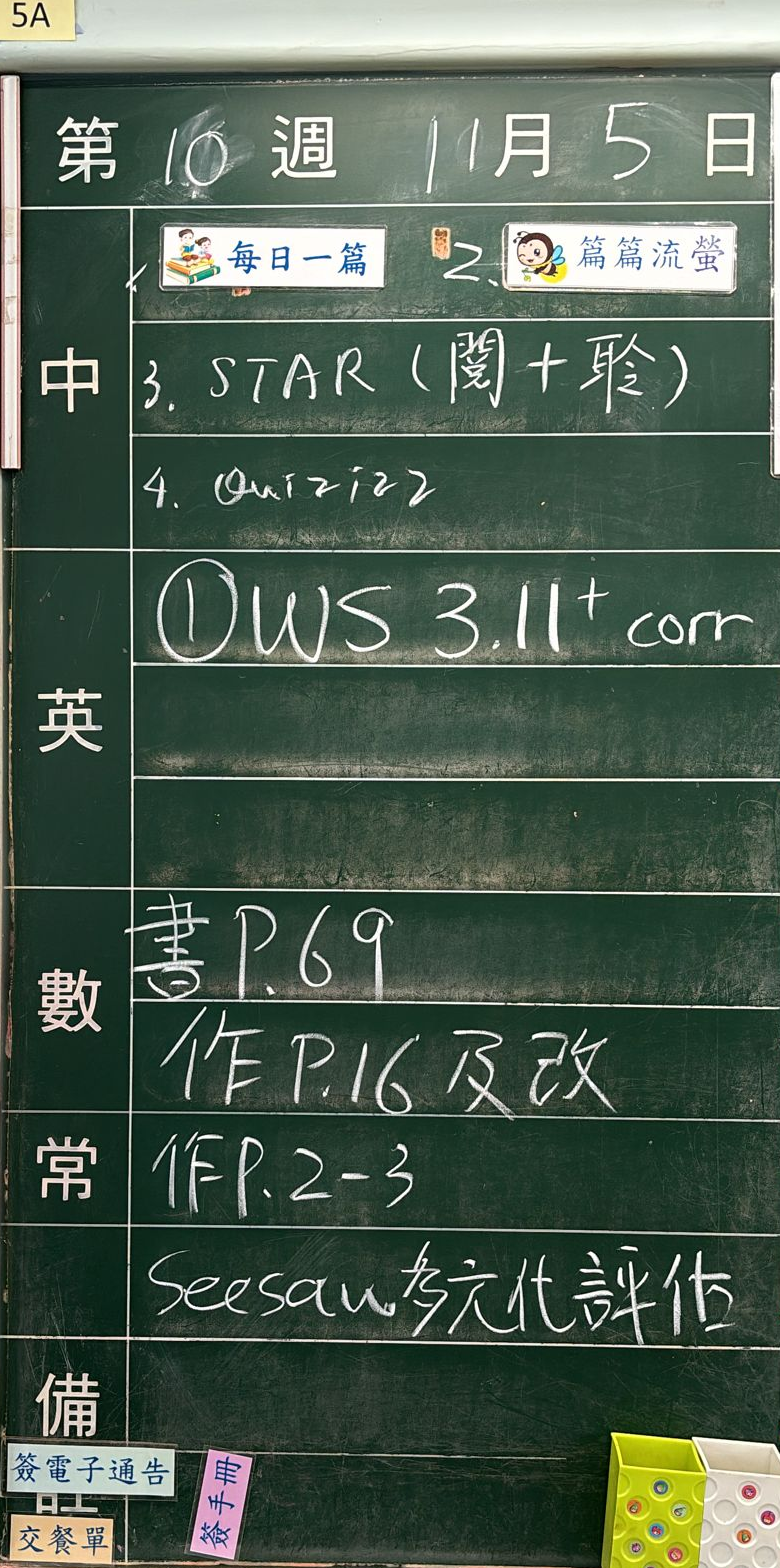 5A
第 10 週 11月 5 日
中
1. 每日一篇 2. 篇篇流螢
3. STAR (閱+聆)
4. Quizizz
英
① WS 3.11 + corr
數
書 P.69
作 P.16 及改
常
作 P.2-3
Seesaw 多元化評估
備註
簽電子通告
簽手冊
交餐單